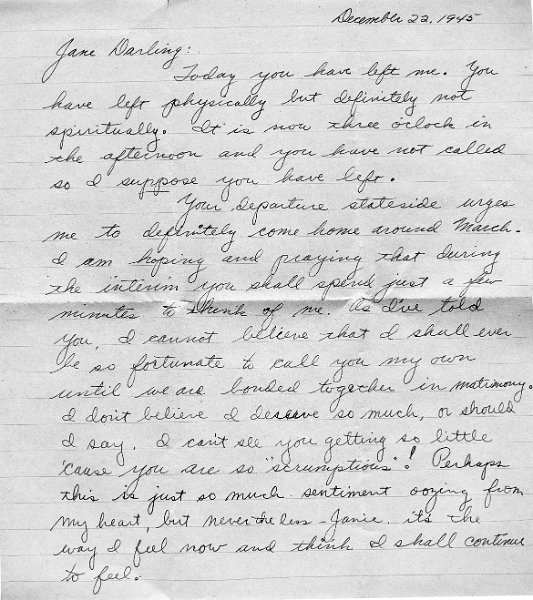 December 22, 1945
Jane Darling:
Today you have left me. You
have left physically but definitely not
spiritually. It is now three o'clock in
the afternoon and you have not called
so I suppose you have left.
Your departure stateside urges
me to definitely come home around March.
I am hoping and praying that during
the interim you shall spend just a few
minutes to think of me. As I've told
you, I cannot believe that I shall ever
be so fortunate to call you my own
until we are bonded together in matrimony.
I don't believe I deserve so much, or should
I say, I can't see you getting so little
'cause you are so "scrumptious"! Perhaps
this is just so much sentiment oozing from
my heart, but never the less - Janie, it's the
way I feel now and think I shall continue
to feel.